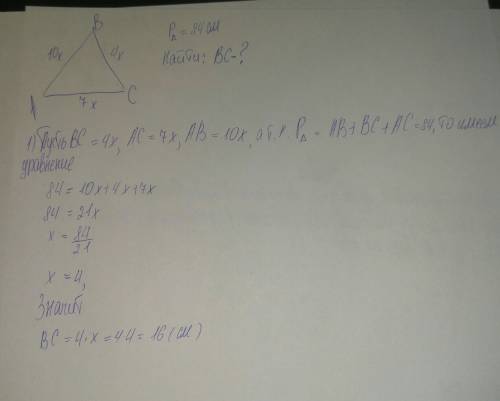 B
10x
4x
A
7x
C
P△ = 84 см
Найти: BC-?
1) Пусть BC = 4x, AC = 7x, AB = 10x, а т.к. P△ = AB + BC + AC = 84, то имеем
уравнение
84 = 10x + 4x + 7x
84 = 21x
x = 84/21
x = 4,
Значит
BC = 4·x = 4·4 = 16 (см)